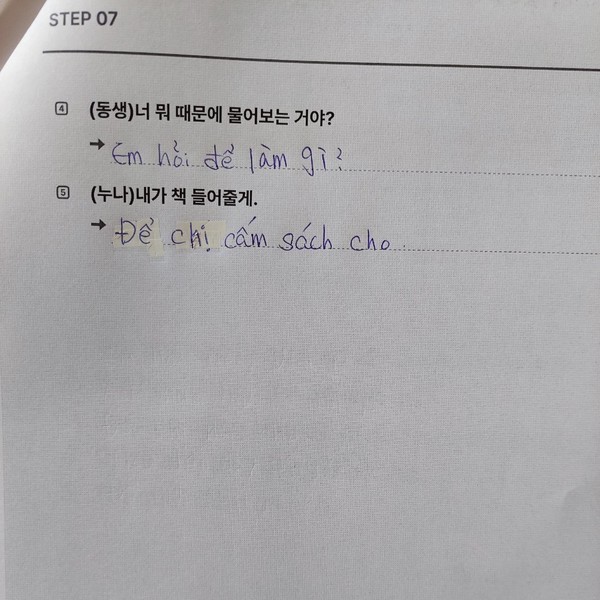 STEP 07
4 (동생)너 뭐 때문에 물어보는 거야?
→ Em hỏi để làm gì?
5 (누나)내가 책 들어줄게.
→ Để chị cấm sách cho